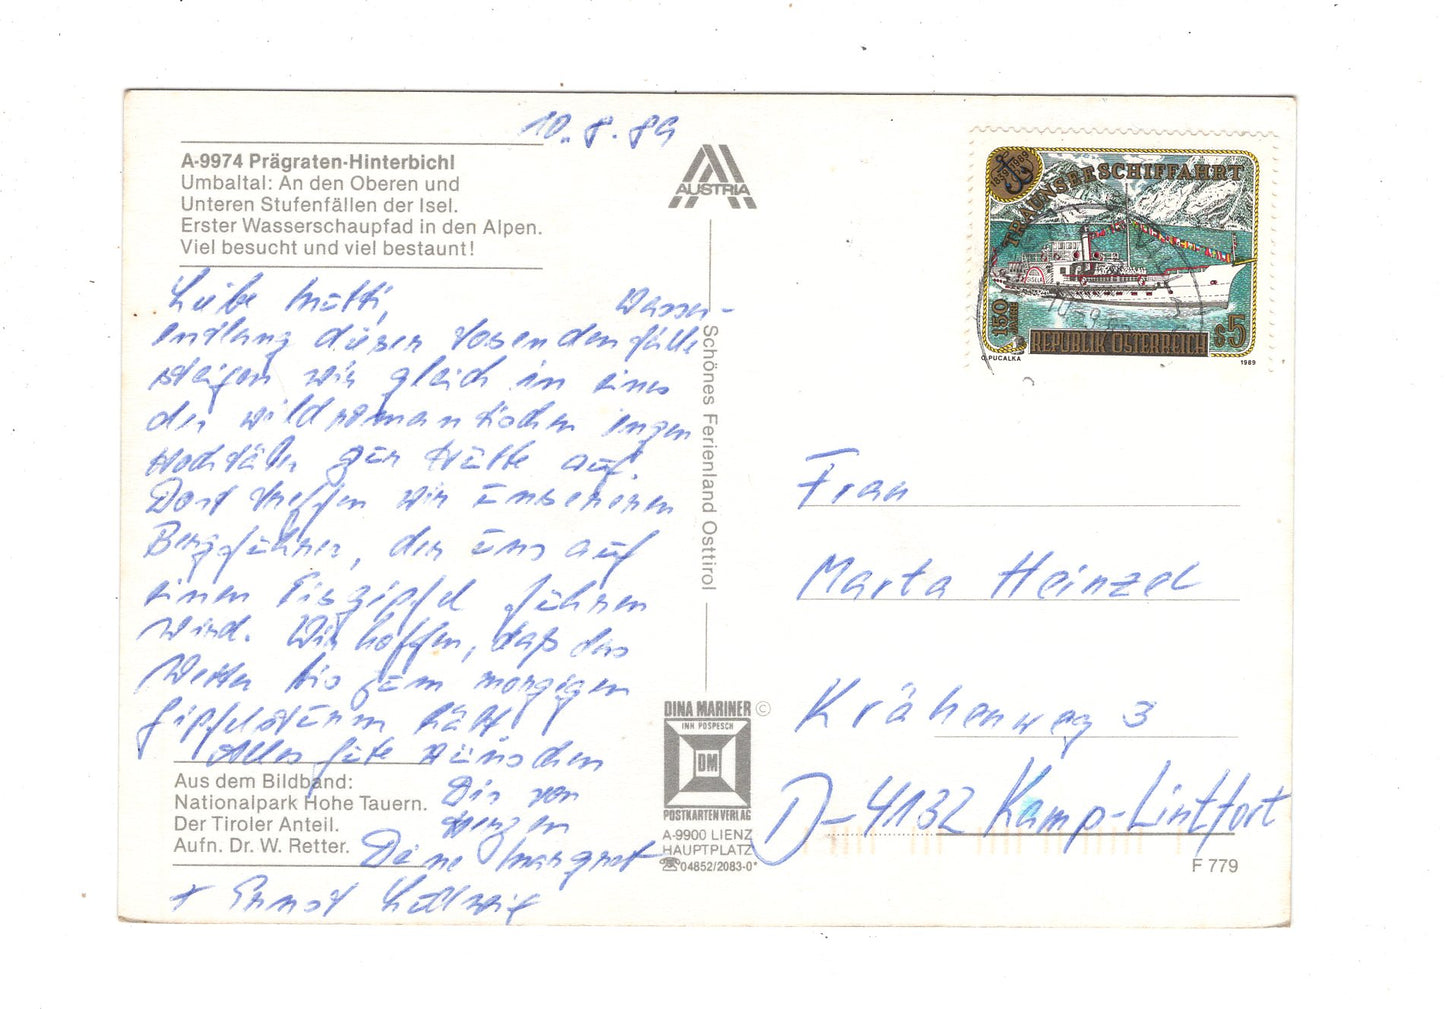 10.8.89
A-9974 Prägraten-Hinterbichl
Umbaltal: An den Oberen und
Unteren Stufenfällen der Isel.
Erster Wasserschaupfad in den Alpen.
Viel besucht und viel bestaunt!
Liebe Mutti,
Wasser-
entlang dieser tosenden fälle
steigen wir gleich in eines
der wildromantischen engen
Hochtäler zur Hütte auf.
Dort treffen wir unseren
Bergführer, der uns auf
einen Eiszipfel führen
wird. Wir hoffen, daß das
Wetter bis zum morgigen
Gipfelsturm hält!
Alles Gute wünschen
Dir von
Herzen
Deine Margret
+ Ernst Ludwig
Aus dem Bildband:
Nationalpark Hohe Tauern.
Der Tiroler Anteil.
Aufn. Dr. W. Retter.
AUSTRIA
Schönes Ferienland Osttirol
DINA MARINER ©
INH POSPESCH
DM
POSTKARTENVERLAG
A-9900 LIENZ
HAUPTPLATZ
☎04852/2083-0*
1839 1989
TRAUNSEESCHIFFAHRT
150
JAHRE
REPUBLIK ÖSTERREICH
S5
O.PUCALKA
1989
Frau
Marta Heinzel
Krähenweg 3
D-4132 Kamp-Lintfort
F 779